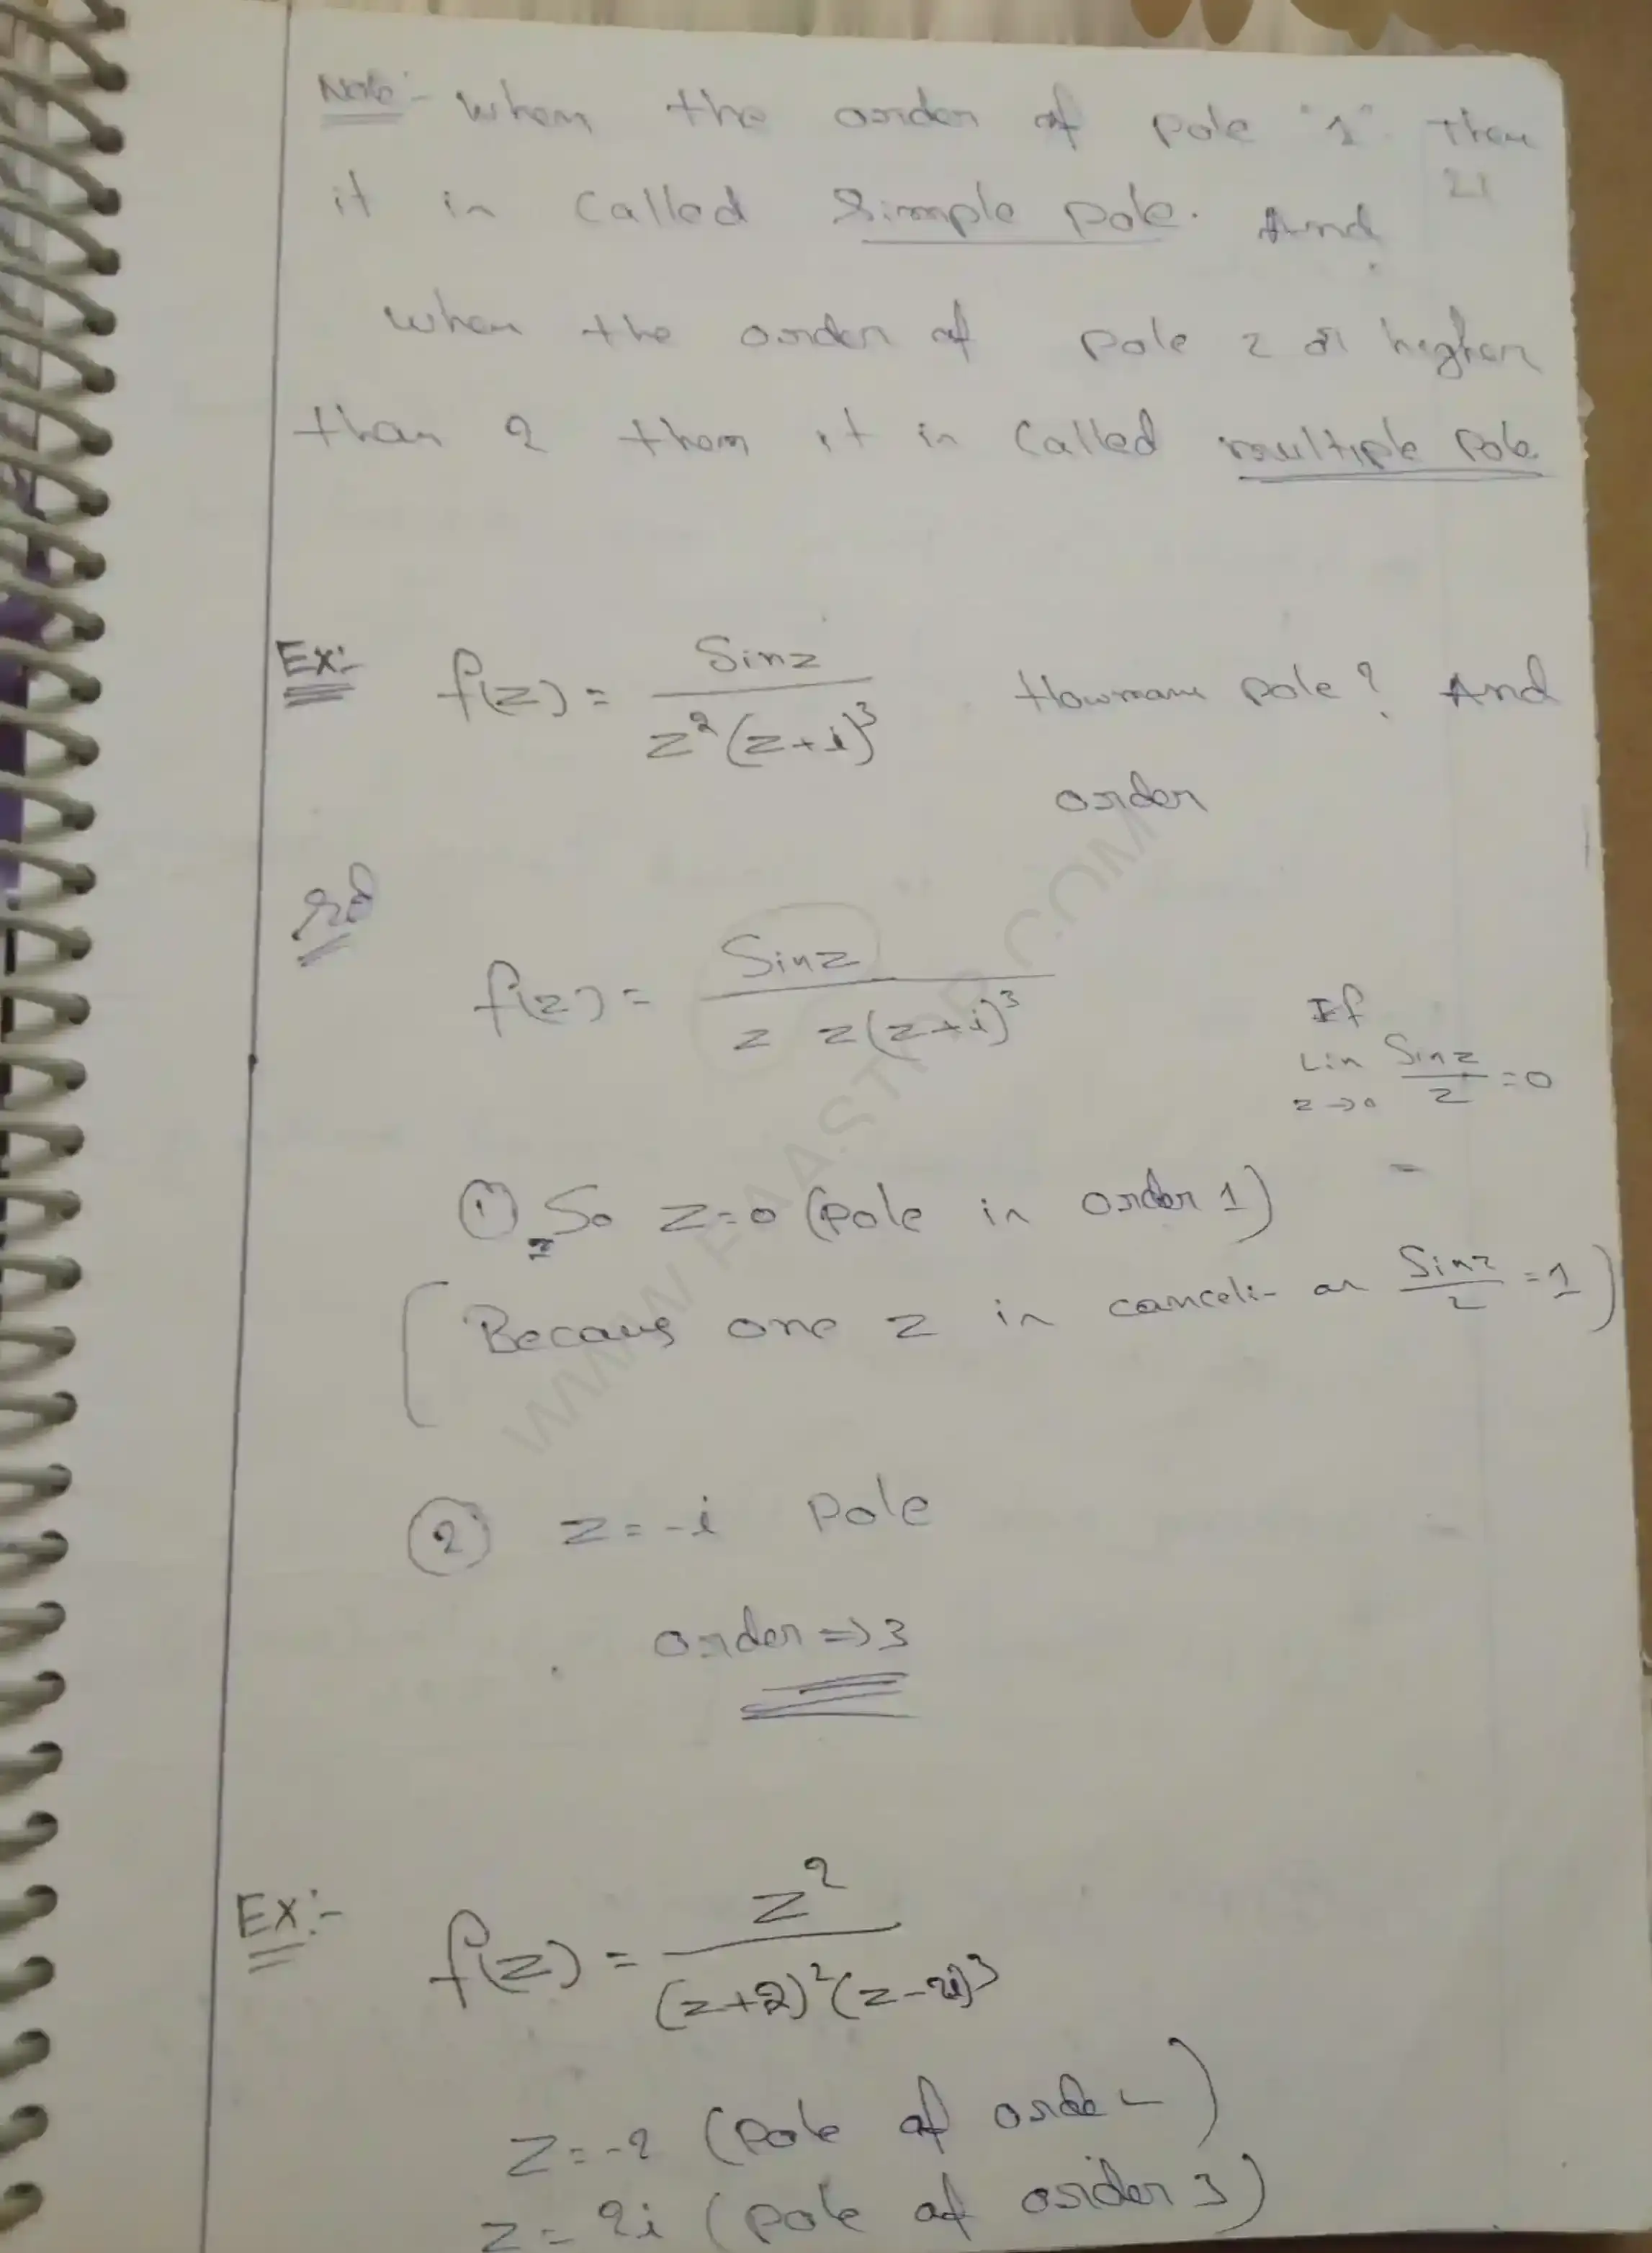 Note:- when the order of pole "1" then
21
it is called Simple pole. And
when the order of pole 2 or higher
than 2 then it is called multiple pole
Ex:- f(z) = Sinz / z²(z+i)³ . Howmany pole? And
order
sol
f(z) = Sinz / z z(z+i)³
If
Lim z→0 Sinz/z = 0
① So z=0 (pole is order 1)
(Becaus one z is cancel- as Sinz/z = 1)
② z=-i pole
order ⇒ 3
Ex:- f(z) = z² / (z+2)²(z-2i)³
z=-2 (pole of orde
z=2i (pole of order 3)
WWW.FAASTOP.COM